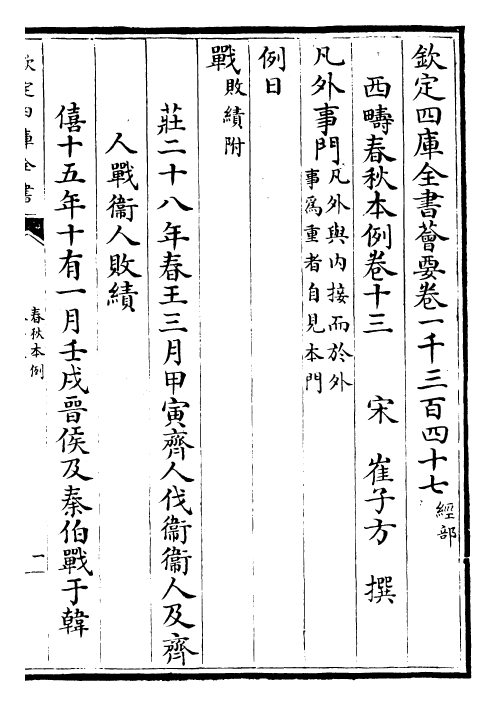 欽定四庫全書薈要卷一千三百四十七 經部
西疇春秋本例卷十三 宋 崔子方 撰
凡外事門 凡外與内接而於外事爲重者自見本門
例日
戰 敗績附
莊二十八年春王三月甲寅齊人伐衞衞人及齊
人戰衞人敗績
僖十五年十有一月壬戌晉侯及秦伯戰于韓
欽定四庫全書
春秋本例
一